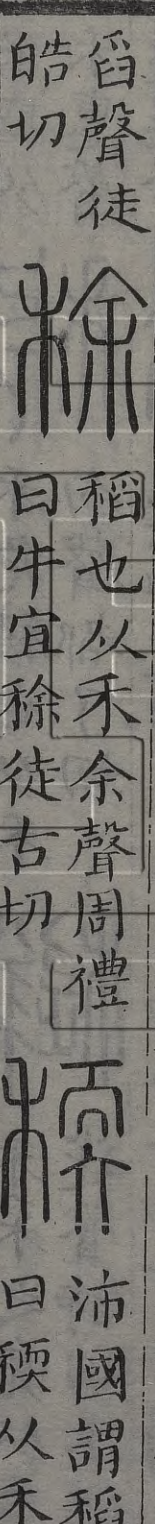 舀聲徒
皓切
稌
稻也从禾余聲周禮
曰牛宜稌徒古切
稬
沛國謂稻
曰稬从禾